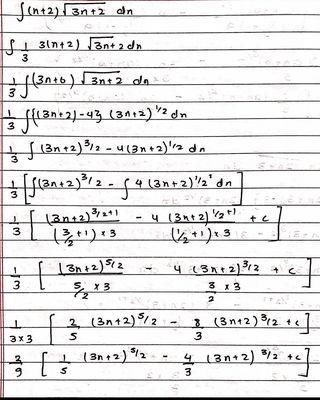 ∫(n+2) √3n+2 dn
∫ 1/3 3(n+2) √3n+2 dn
1/3 ∫(3n+6) √3n+2 dn
1/3 ∫{(3n+2)-4} (3n+2)^1/2 dn
1/3 ∫ (3n+2)^3/2 - 4(3n+2)^1/2 dn
1/3 [∫(3n+2)^3/2 - ∫ 4 (3n+2)^1/2 dn]
1/3 [ (3n+2)^3/2+1 / (3/2+1)×3 - 4 (3n+2)^1/2+1 / (1/2+1)×3 + c ]
1/3 [ (3n+2)^5/2 / 5/2 × 3 - 4 (3n+2)^3/2 / 3/2 × 3 + c ]
1/3×3 [ 2/5 (3n+2)^5/2 - 8/3 (3n+2)^3/2 + c ]
2/9 [ 1/5 (3n+2)^5/2 - 4/3 (3n+2)^3/2 + c ]